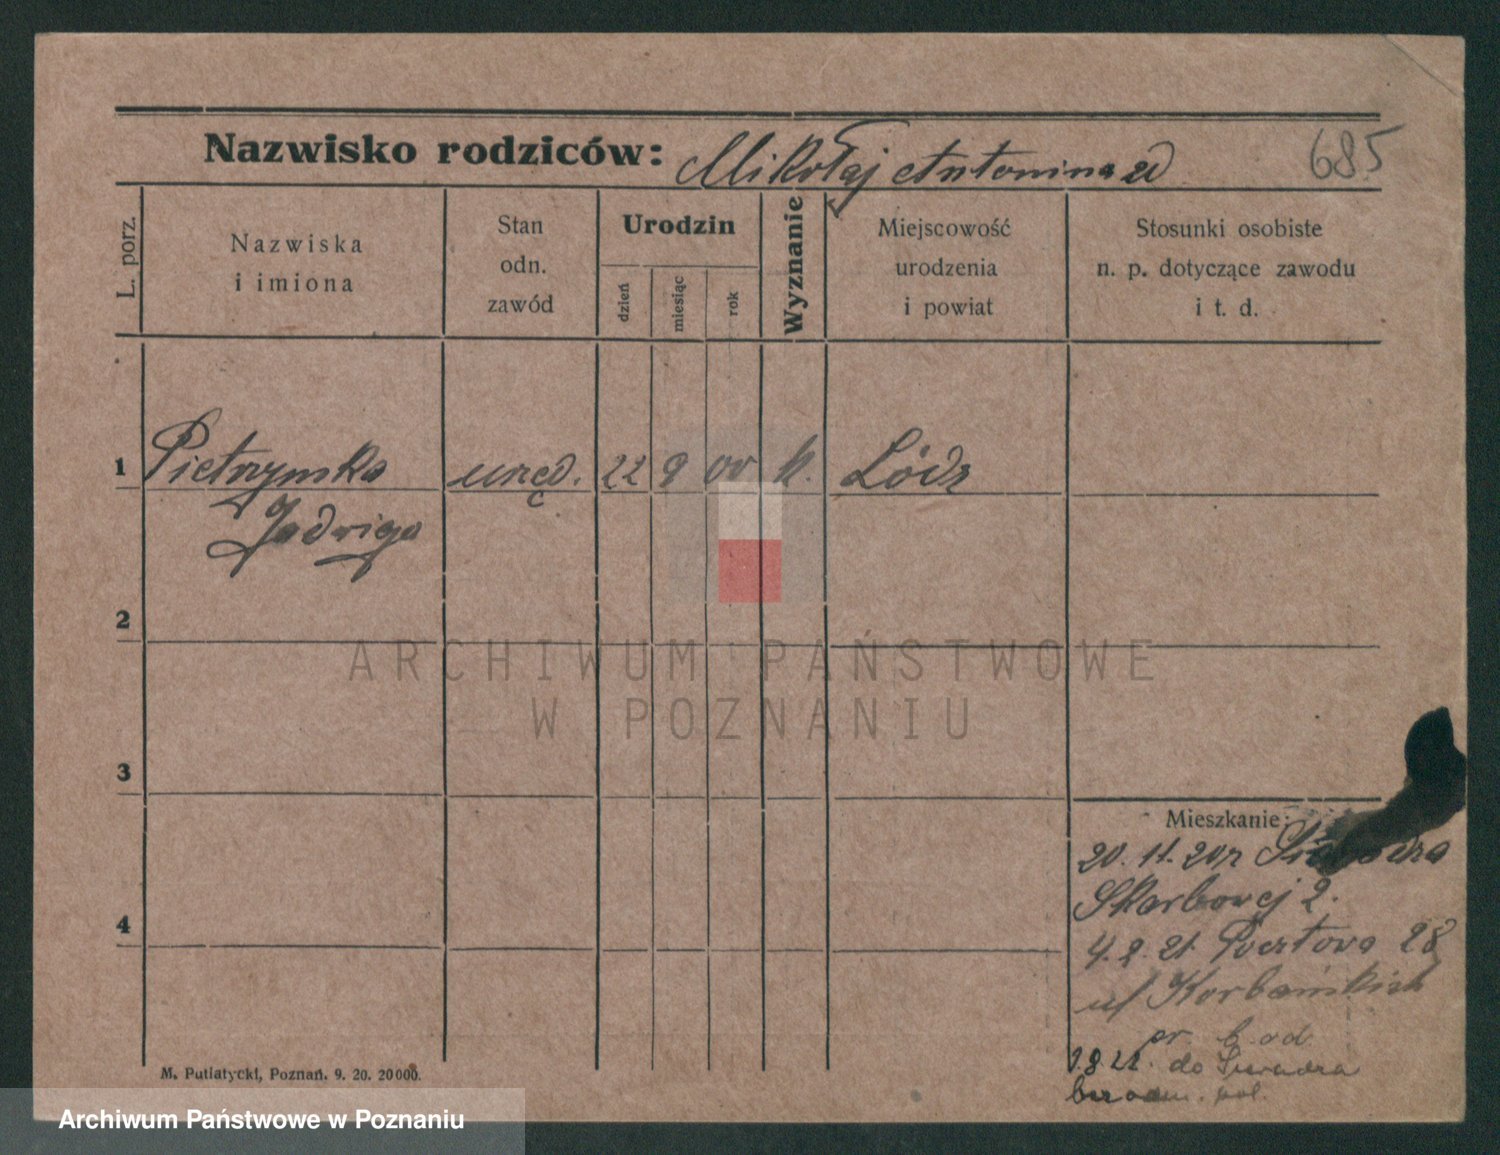 685
Nazwisko rodziców: Mikołaj Antonina
L. porz.
Nazwiska
i imiona
Stan
odn.
zawód
Urodzin
dzień
miesiąc
rok
Wyznanie
Miejscowość
urodzenia
i powiat
Stosunki osobiste
n. p. dotyczące zawodu
i t. d.
1 Pietrzynska urzęd. 22 9 00 k. Łódz
Jadwiga
2
ARCHIWUM PAŃSTWOWE
W POZNANIU
3
4
Mieszkanie:
20. 11. 20 z
Skarbowej 2.
4. 2. 21. Pocztowa 28
u/ Korbańskich
pr b. od
1.8.22. do Sieradza
bez odm. pol.
M. Putiatycki, Poznań. 9. 20. 20000.
Archiwum Państwowe w Poznaniu